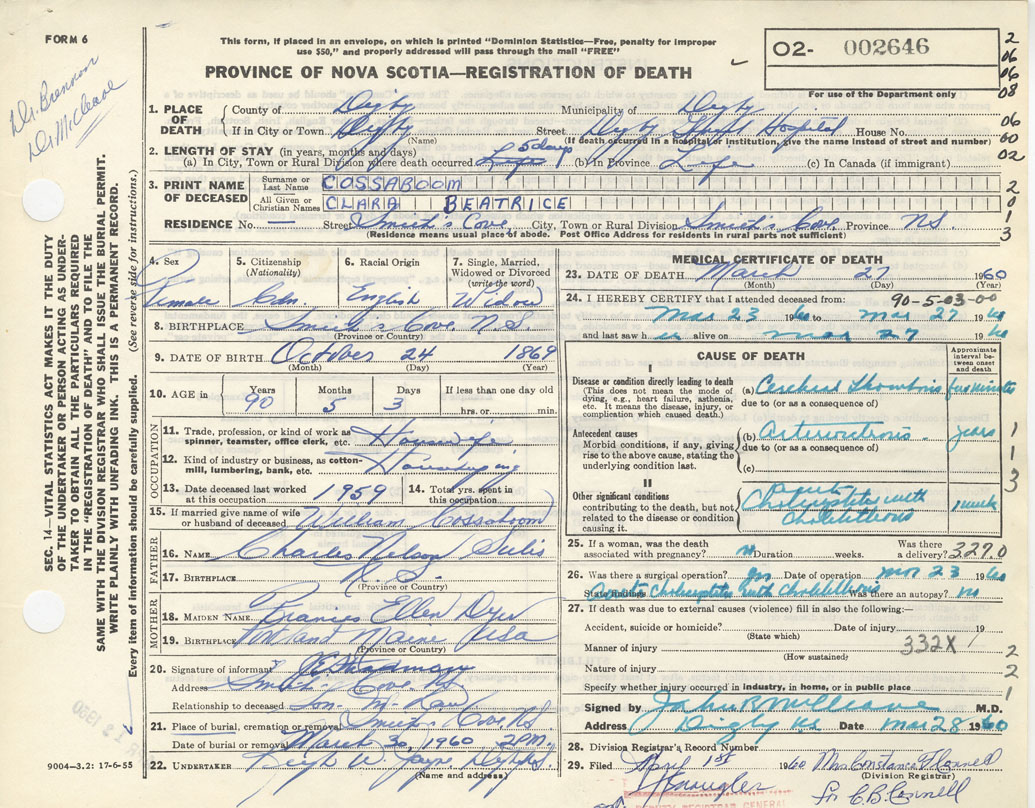 FORM 6
This form, if placed in an envelope, on which is printed "Dominion Statistics—Free, penalty for improper
use $50," and properly addressed will pass through the mail "FREE"
PROVINCE OF NOVA SCOTIA—REGISTRATION OF DEATH
02- 002646
For use of the Department only
2
06
06
08
06
60
02
2
0
1
3
Dr. Brennan
Dr McCleave
SEC. 14—VITAL STATISTICS ACT MAKES IT THE DUTY
OF THE UNDERTAKER OR PERSON ACTING AS UNDER-
TAKER TO OBTAIN ALL THE PARTICULARS REQUIRED
IN THE "REGISTRATION OF DEATH" AND TO FILE THE
SAME WITH THE DIVISION REGISTRAR WHO SHALL ISSUE THE BURIAL PERMIT.
WRITE PLAINLY WITH UNFADING INK. THIS IS A PERMANENT RECORD.
Every item of information should be carefully supplied. (See reverse side for instructions.)
1. PLACE OF DEATH County of Digby Municipality of Digby
If in City or Town Digby Street Digby Hospital House No.
(Name) (If death occurred in a hospital or institution, give the name instead of street and number)
2. LENGTH OF STAY (in years, months and days)
(a) In City, Town or Rural Division where death occurred 5 days (b) In Province Life (c) In Canada (if immigrant)
3. PRINT NAME OF DECEASED Surname or Last Name COSSABOOM
All Given or Christian Names CLARA BEATRICE
RESIDENCE No. — Street Smith's Cove, City, Town or Rural Division Smith's Cove, Province NS
(Residence means usual place of abode. Post Office Address for residents in rural parts not sufficient)
4. Sex Female
5. Citizenship (Nationality) Cdn.
6. Racial Origin English
7. Single, Married, Widowed or Divorced (write the word) Widow
8. BIRTHPLACE Smith's Cove N.S.
(Province or Country)
9. DATE OF BIRTH October 24 1869
(Month) (Day) (Year)
10. AGE in Years 90 Months 5 Days 3 If less than one day old hrs. or min.
OCCUPATION
11. Trade, profession, or kind of work as spinner, teamster, office clerk, etc. Housewife
12. Kind of industry or business, as cotton-mill, lumbering, bank, etc. Housekeeping
13. Date deceased last worked at this occupation 1959
14. Total yrs. spent in this occupation
15. If married give name of wife or husband of deceased William Cossaboom
FATHER
16. NAME Charles Nelson Sulis
17. BIRTHPLACE N.S.
(Province or Country)
MOTHER
18. MAIDEN NAME Frances Ellen Dyer
19. BIRTHPLACE Portland Maine USA
(Province or Country)
20. Signature of informant
Address Smith's Cove NS
Relationship to deceased Son-in-Law
21. Place of burial, cremation or removal Smith's Cove NS
Date of burial or removal March 30, 1960 2 P.M.
22. UNDERTAKER W. Jayne Digby N.S.
(Name and address)
MEDICAL CERTIFICATE OF DEATH
23. DATE OF DEATH March 27 1960
(Month) (Day) (Year)
24. I HEREBY CERTIFY that I attended deceased from: 90-5-03-00
Mar 23 1960 to Mar 27 1960
and last saw h er alive on Mar 27 1960
CAUSE OF DEATH
Approximate interval between onset and death
I
Disease or condition directly leading to death
(This does not mean the mode of dying, e.g., heart failure, asthenia, etc. It means the disease, injury, or complication which caused death.)
(a) Cerebral Thrombosis few minutes
due to (or as a consequence of)
Antecedent causes
Morbid conditions, if any, giving rise to the above cause, stating the underlying condition last.
(b) Arteriosclerosis. years
due to (or as a consequence of)
(c)
1
1
3
3
II
Other significant conditions
contributing to the death, but not related to the disease or condition causing it.
acute Cholecystitis with Cholelithiasis 1 week
1
25. If a woman, was the death associated with pregnancy? no Duration weeks. Was there a delivery? 327.0
26. Was there a surgical operation? yes Date of operation Mar 23 1960
State findings Acute Cholecystitis with Cholelithiasis Was there an autopsy? no
27. If death was due to external causes (violence) fill in also the following:—
Accident, suicide or homicide? Date of injury 19
(State which)
Manner of injury 332X
(How sustained)
Nature of injury
Specify whether injury occurred in industry, in home, or in public place
2
2
1
Signed by John R McCleave M.D.
Address Digby N.S. Date Mar 28 1960
28. Division Registrar's Record Number
29. Filed April 1st 1960 Mrs Constance F Connell
(Division Registrar)
for C.B. Connell
DEPUTY REGISTRAR GENERAL
9004—3.2: 17-6-55